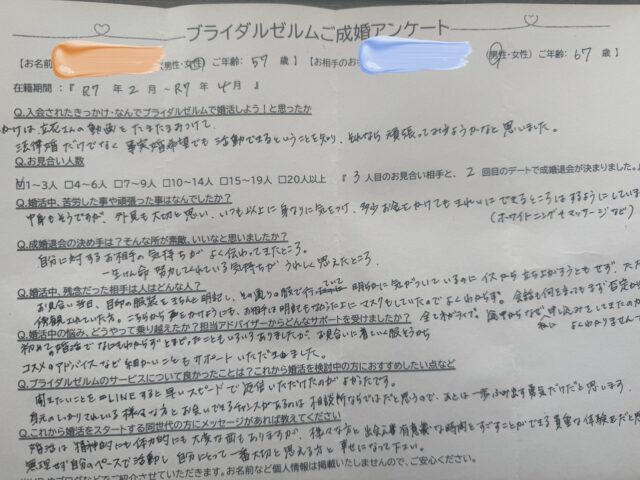 ブライダルゼルムご成婚アンケート
【お名前 (男性・女性) ご年齢: 57 歳】 【お相手のお (男性・女性) ご年齢: 67 歳】
在籍期間:『 R7 年 2 月 ~ R7 年 4 月 』
Q.入会されたきっかけ・なんでブライダルゼルムで婚活しよう!と思ったか
かけは立花さんの動画をたまたまみつけて
法律婚だけでなく事実婚希望でも活動できるということを知り、それなら頑張ってみようかなと思いました。
Q.お見合い人数
☑1~3人 □4~6人 □7~9人 □10~14人 □15~19人 □20人以上 『 3 人目のお見合い相手と、 2 回目のデートで成婚退会が決まりました。』
Q.婚活中、苦労した事や頑張った事はなんでしたか?
中身もそうですが、外見も大切と思い、いつも以上に身なりに気をつけ、多少お金をかけてもきれいにできるところはするようにしていま
(ホワイトニングやマッサージなど)
Q.成婚退会の決め手は?そんな所が素敵、いいなと思いましたか?
自分に対するお相手の気持ちがよく伝わってきたところ。
一生けん命努力してくれている気持ちがうれしく思えたところ
Q.婚活中、残念だった相手は人はどんな人?
お見合い当日、目印の服装をきちんと明記し、その通りの服で行っていて明らかに気がついているのにイスから立ち上がろうともせず、ただ
傍観されていた方。こちらから声をかけようにも、お相手は明記もなく
マスクもしていたのでよくわからず。会話も何を言ってもまず否定から
Q.婚活中の悩み、どうやって乗り越えたか?担当アドバイザーからどんなサポートを受けましたか?
全てネガティブ。
なぜ申し込みをしてきたのか
私には よくわかりません
初めての婚活でなにもわからずとまどったこともいろいろありましたが、お見合いに着ていく服どうやら
コスメのアドバイスなど細かいこともサポートいただきました。
Q.ブライダルゼルムのサービスについて良かったことは?これから婚活を検討中の方におすすめしたい点など
聞きたいことをLINEすると早いスピードで返信いただけたのがよかったです。
身元のしっかりされている様々な方とお会いできるチャンスがあるのは相談所ならではだと思うので、あとは一歩ふみ出す勇気だけだと思います。
Q.これから婚活をスタートする同世代の方にメッセージがあれば教えてください
婚活は精神的にも体力的にも大変な面もありますが、様々な方と出会え有意義な時間をすごすことができる貴重な体験をだと思
無理せず自分のペースで活動し自分にとって一番大切と思える方と幸せになって下さい。
ご紹介させていただきます。お名前など個人情報は掲載いたしませんので、ご安心ください。